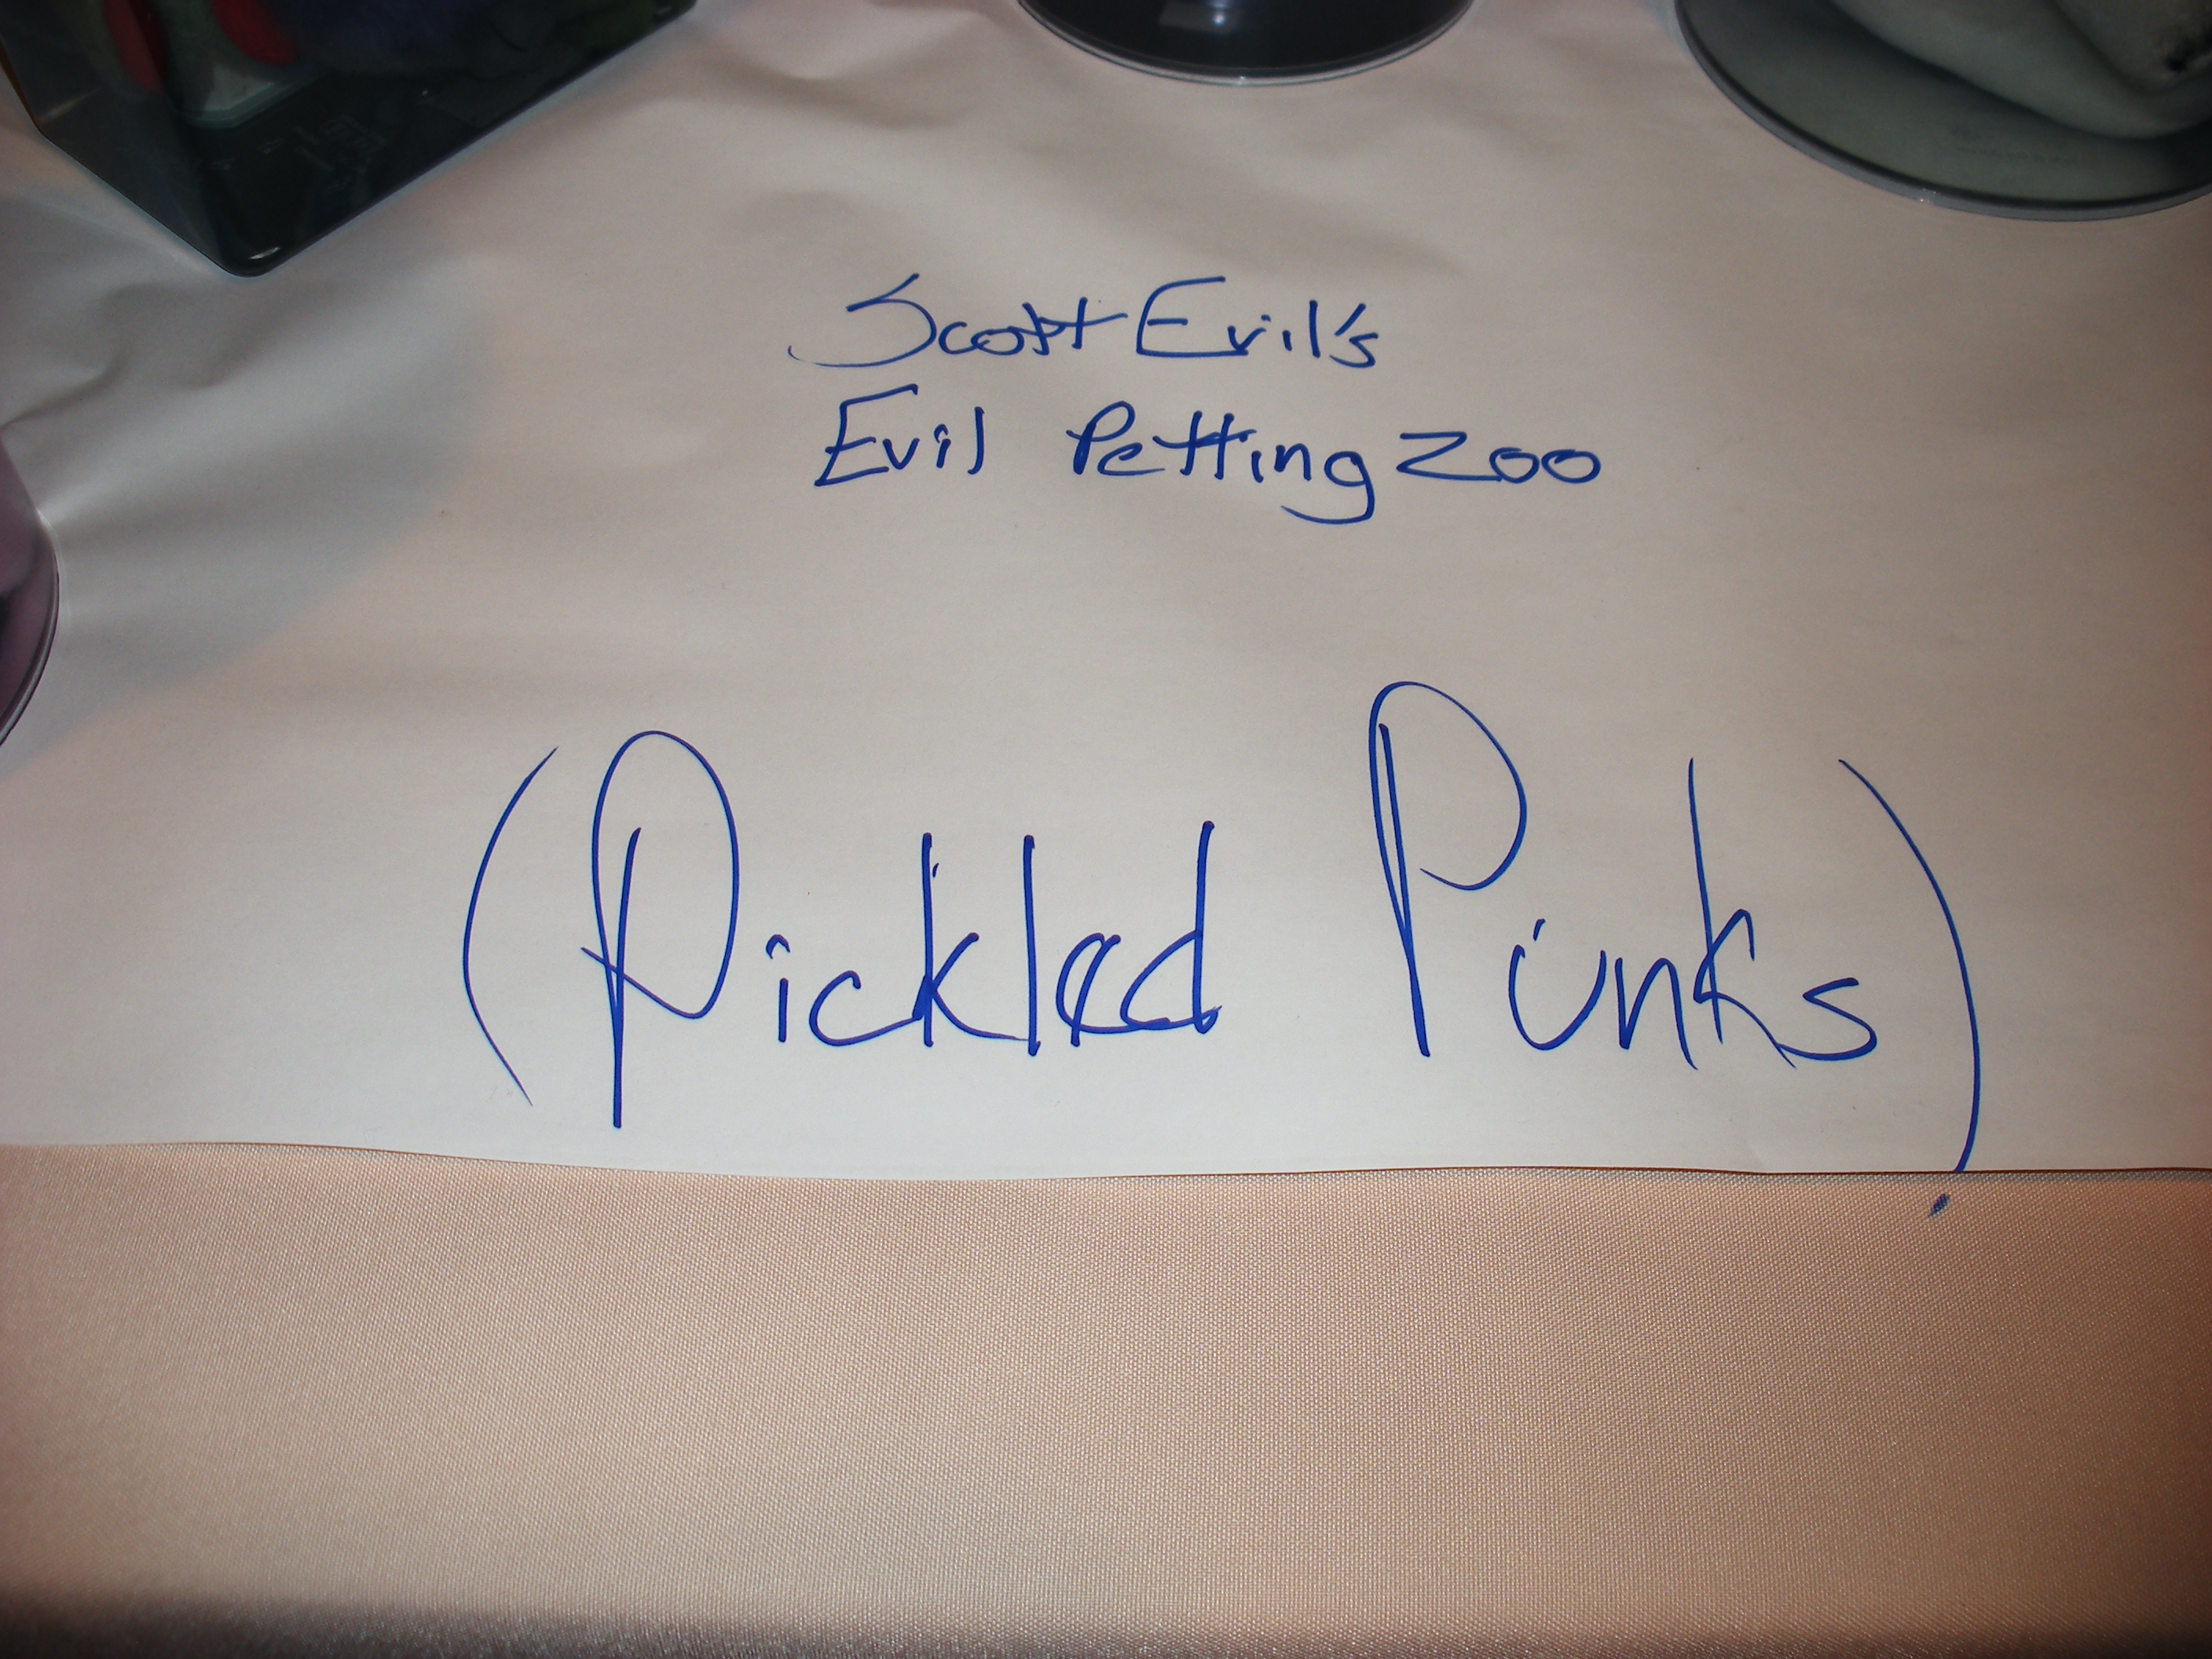 Scott Evil's
Evil Petting Zoo
(Pickled Punks)